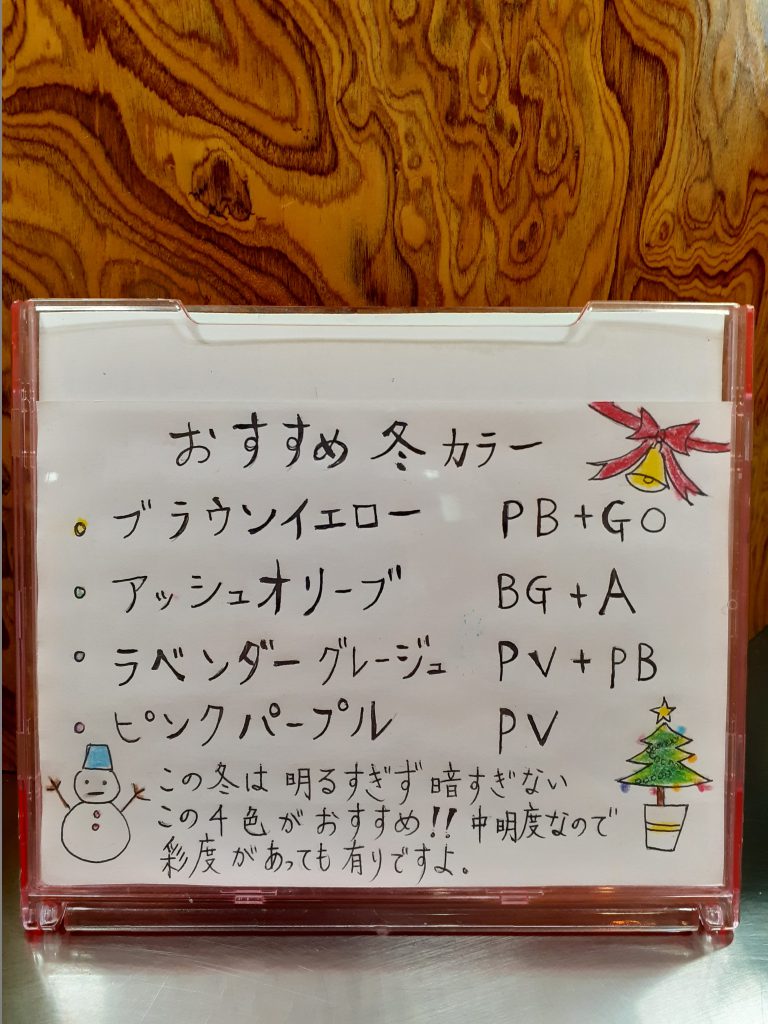 おすすめ 冬 カラー
ブラウンイエロー PB+GO
アッシュオリーブ BG+A
ラベンダーグレージュ PV+PB
ピンクパープル PV
この冬は 明るすぎず 暗すぎない
この4色が おすすめ!! 中明度なので
彩度があっても有りですよ。